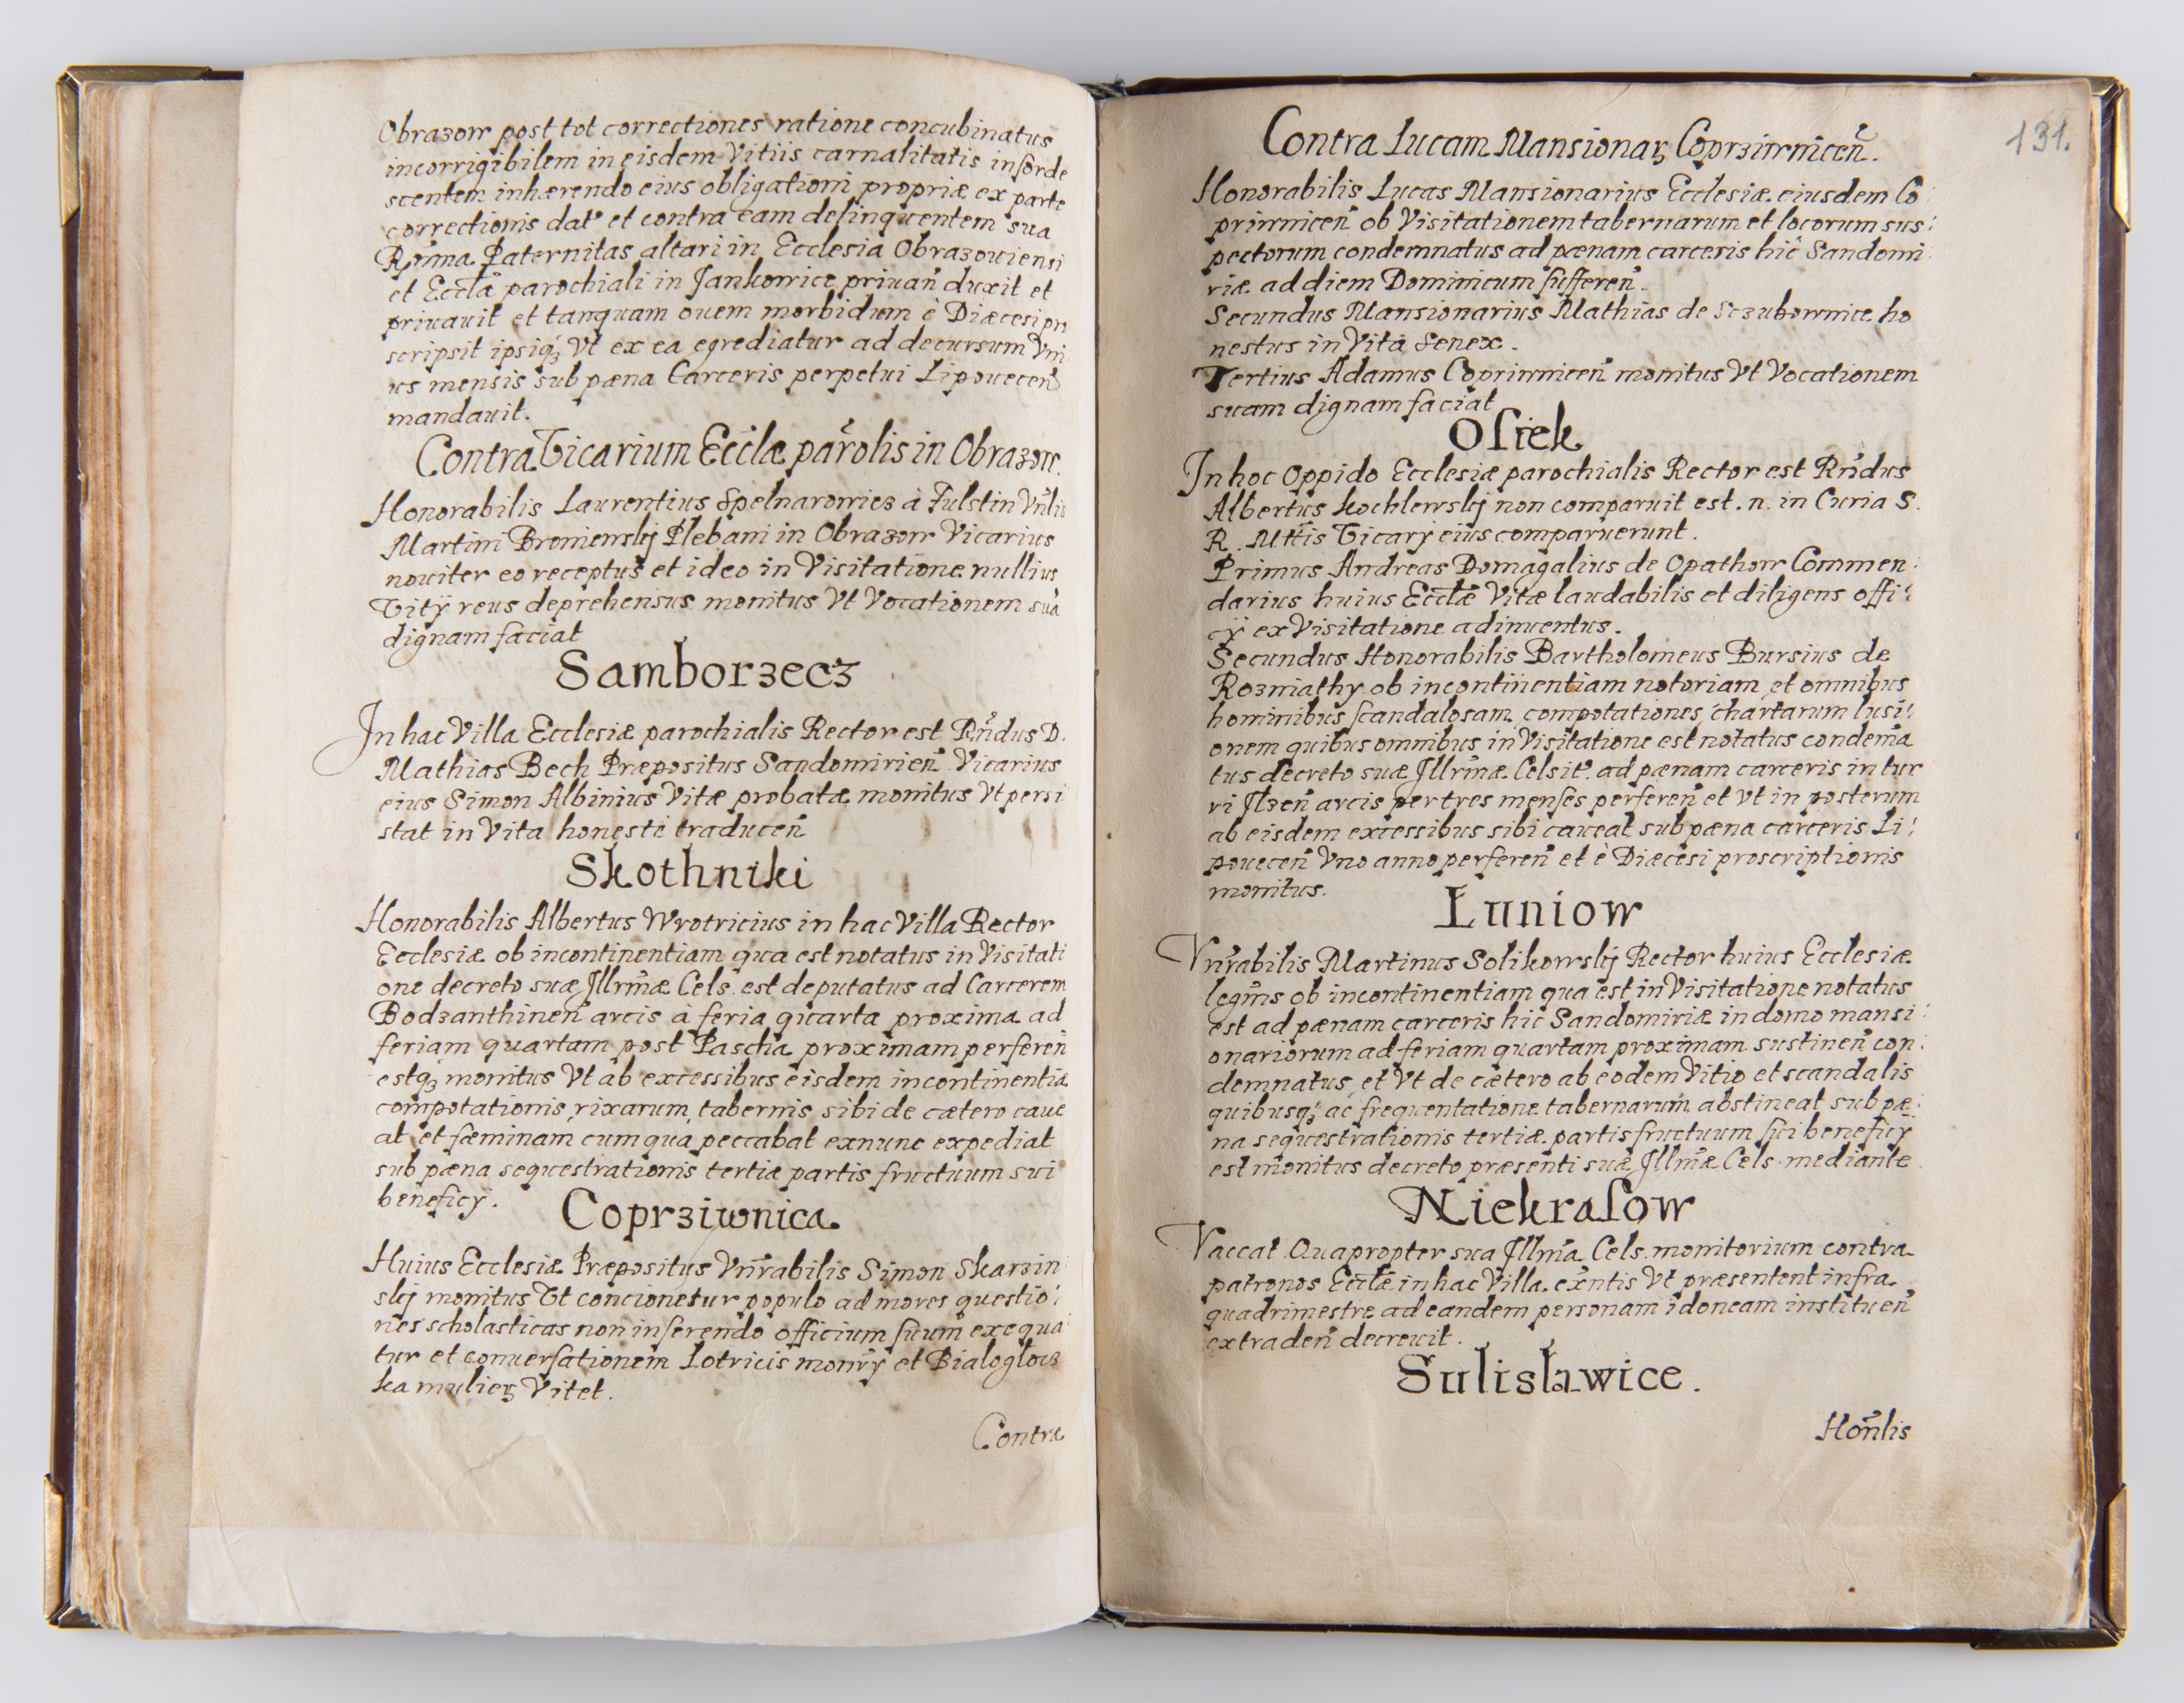 Obrazow post tot correctiones ratione concubinatus
incorrigibilem in eisdem Vitiis carnalitatis insorde
scentem inhærendo eius obligationi propriæ ex parte
correctionis dat° et contra eam delinquentem sua
Rm̃a Paternitas altari in Ecclesia Obrazouiensi
et Eccl̃a parochiali in Jankowice priuañ duxit et
priuauit et tanquam ouem morbidum è Diæcesi pro
scripsit ipsiqȝ Vt ex ea egrediatur ad decursum Vni
us mensis sub pæna Carceris perpetui Lipouecen̄
mandauit.
Contra Vicarium Eccl̃æ par̃olis in Obrazow
Honorabilis Laurentius Spelnarowicz à Fulstin Vñlis
Martini Broniewskj Plebani in Obrazow Vicarius
nouiter eo receptus et ideo in Visitatione nullius
Vitÿ reus deprehensus monitus Vt Vocationem suã
dignam faciat
Samborzecz
In hac Villa Ecclesiæ parochialis Rector est Rñdus D.
Mathias Bech Præpositus Sandomirien̄ Vicarius
eius Simon Albinius Vitæ probatæ monitus Vt persi
stat in Vita honestè traducen̄
Skothniki
Honorabilis Albertus Wrotricius in hac Villa Rector
Ecclesiæ ob incontinentiam qua est notatus in Visitati
one decreto suæ Jllrm̃æ Cels. est deputatus ad Carcerem
Bodzanthinen̄ arcis à feria quarta proxima ad
feriam quartam post Pascha proximam perferen̄
estqȝ monitus Vt ab excessibus eisdem incontinentiæ
compotationis, rixarum, tabernis sibi de cætero caue
at et fæminam cum qua peccabat exnunc expediat
sub pæna sequestrationis tertiæ partis fructuum sui
beneficÿ.
Coprziwnica.
Huius Ecclesiæ Præpositus Vñrabilis Simon Skarzin
skj monitus Vt concionetur populo ad mores questio:
nes scholasticas non inserendo officium suum exequa
tur et conuersationem Lotricis monr̃ÿ et Bialoglows
ka mulierȝ Vitet.
Contra
131.
Contra Lucam Mansionarȝ Coprziwnicen̄.
Honorabilis Lucas Mansionarius Ecclesiæ eiusdem Co
priwnicen̄ ob Visitationem tabernarum et locorum sus:
pectorum condemnatus ad pænam carceris hîc Sandomi:
riæ ad diem Dominicum sufferen̄.
Secundus Mansionarius Mathias de Sczubownice ho
nestus in Vita Senex.
Tertius Adamus Copriwnicen̄ monitus Vt Vocationem
suam dignam faciat
Osiek
In hoc Oppido Ecclesiæ parochialis Rector est Rñdus
Albertus Kochlewskj non comparuit est. n. in Curia S.
R. Mttis Vicarÿ eius comparuerunt.
Primus Andreas Domagalius de Opathow Commen:
darius huius Eccl̃æ Vitæ laudabilis et diligens offi:
cÿ ex Visitatione adinuentus.
Secundus Honorabilis Bartholomeus Bursius de
Rozniathy ob incontinentiam notoriam et omnibus
hominibus scandalosam, compotationes, chartarum lusi:
onem quibus omnibus in Visitatione est notatus condem̃a
tus decreto suæ Jllrm̃æ Celsit. ad pænam carceris in tur
ri Jlzen̄ arcis per tres menses perferen̄ et Vt in posterum
ab eisdem excessibus sibi caueat sub pæna carceris Li:
pouecen̄ Vno anno perferen̄ et è Diæcesi proscriptionis
monitus.
Luniow
Vñrabilis Martinus Solikowskj Rector huius Ecclesiæ
legm̃s ob incontinentiam qua est in Visitatione notatus
est ad pænam carceris hîc Sandomiriæ in domo mansi:
onariorum ad feriam quartam proximam sustinen̄ con:
demnatus, et Vt de cætero ab eodem Vitio et scandalis
quibusqȝ ac frequentatione tabernarum abstineat sub pæ:
na sequestrationis tertiæ partis fructuum sui beneficÿ
est monitus decreto præsenti suæ Jllm̃æ Cels. mediante
Niekrasow
Vaccat. Quapropter sua Jllm̃a Cels. monitorium contra
patronos Eccl̃æ in hac Villa ex̃ntis Vt præsentent infra
quadrimestre ad eandem personam idoneam instituen̄
extraden̄ decreuit.
Sulisławice.
Hoñlis